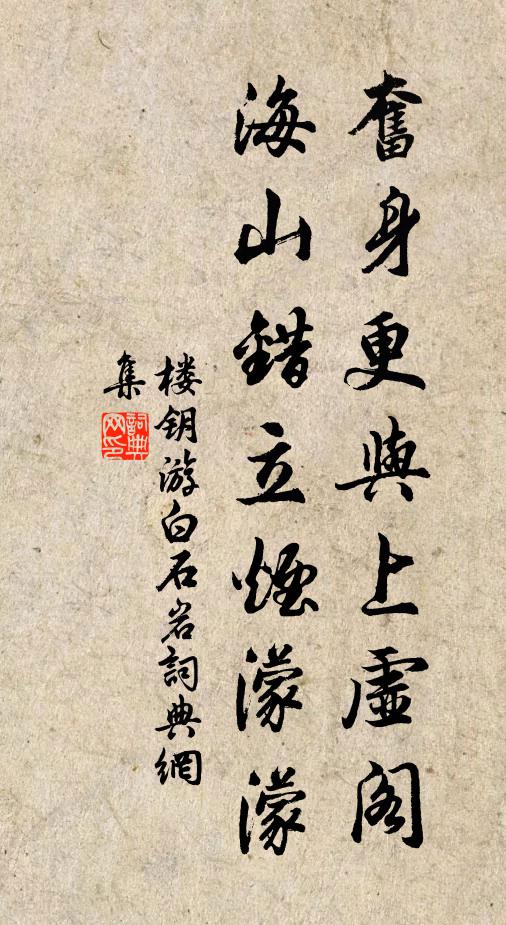 奮身更與上虛閣
海山錯立煙濛濛
楼钥游白石岩詞典網
集
詞典网印